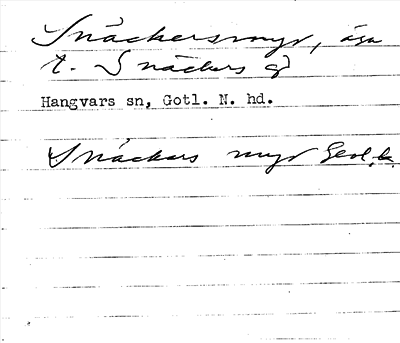 Snäckersmyr, äga
t. Snäckers gd
Hangvars sn, Gotl. N. hd.
Snäckers myr Geol. b.